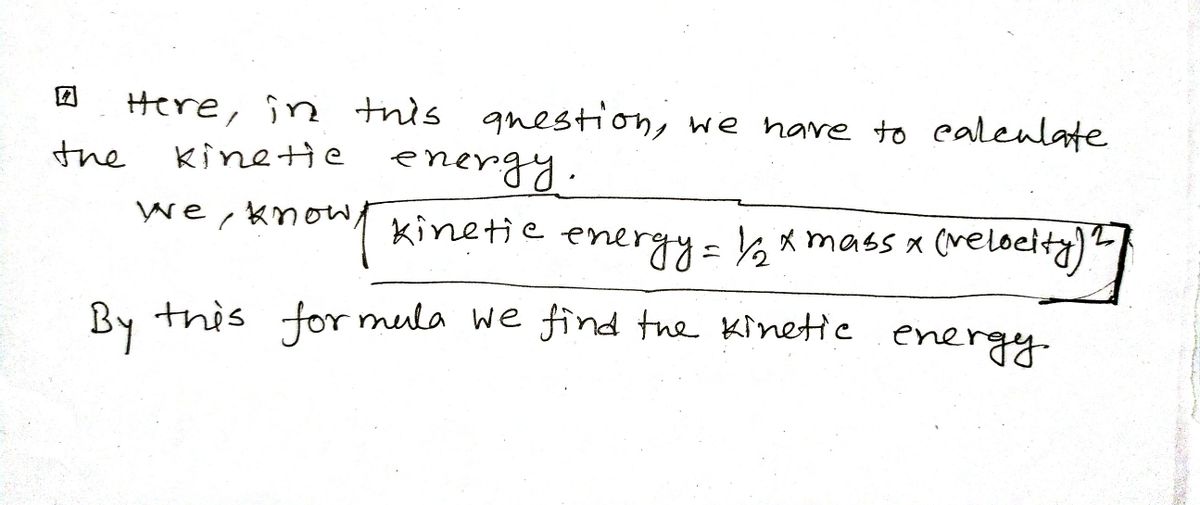 Here, in this question, we have to calculate
the kinetic energy.
we, know, kinetic energy = 1/2 x mass x (velocity)²
By this formula we find the kinetic energy.